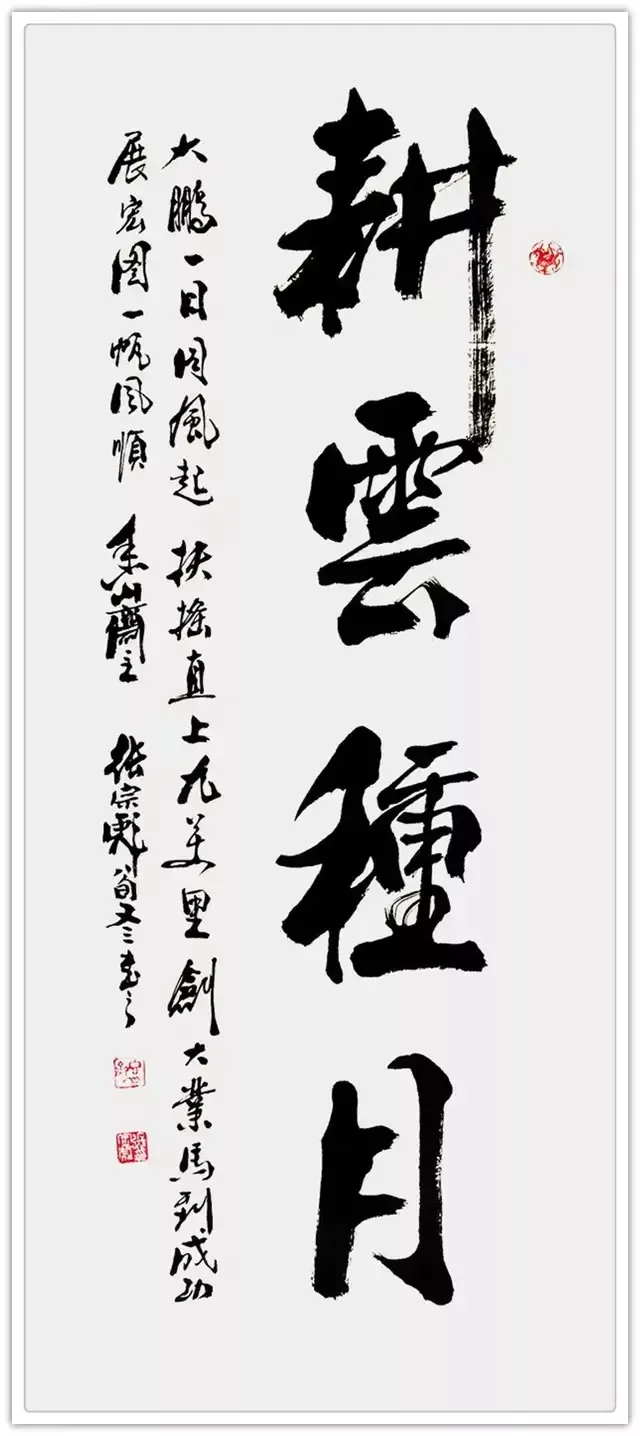 耕雲種月
大鵬一日同風起 扶搖直上九萬里 創大業馬到成功
展宏图一帆风順 山齋主 張宗彪 冬書之